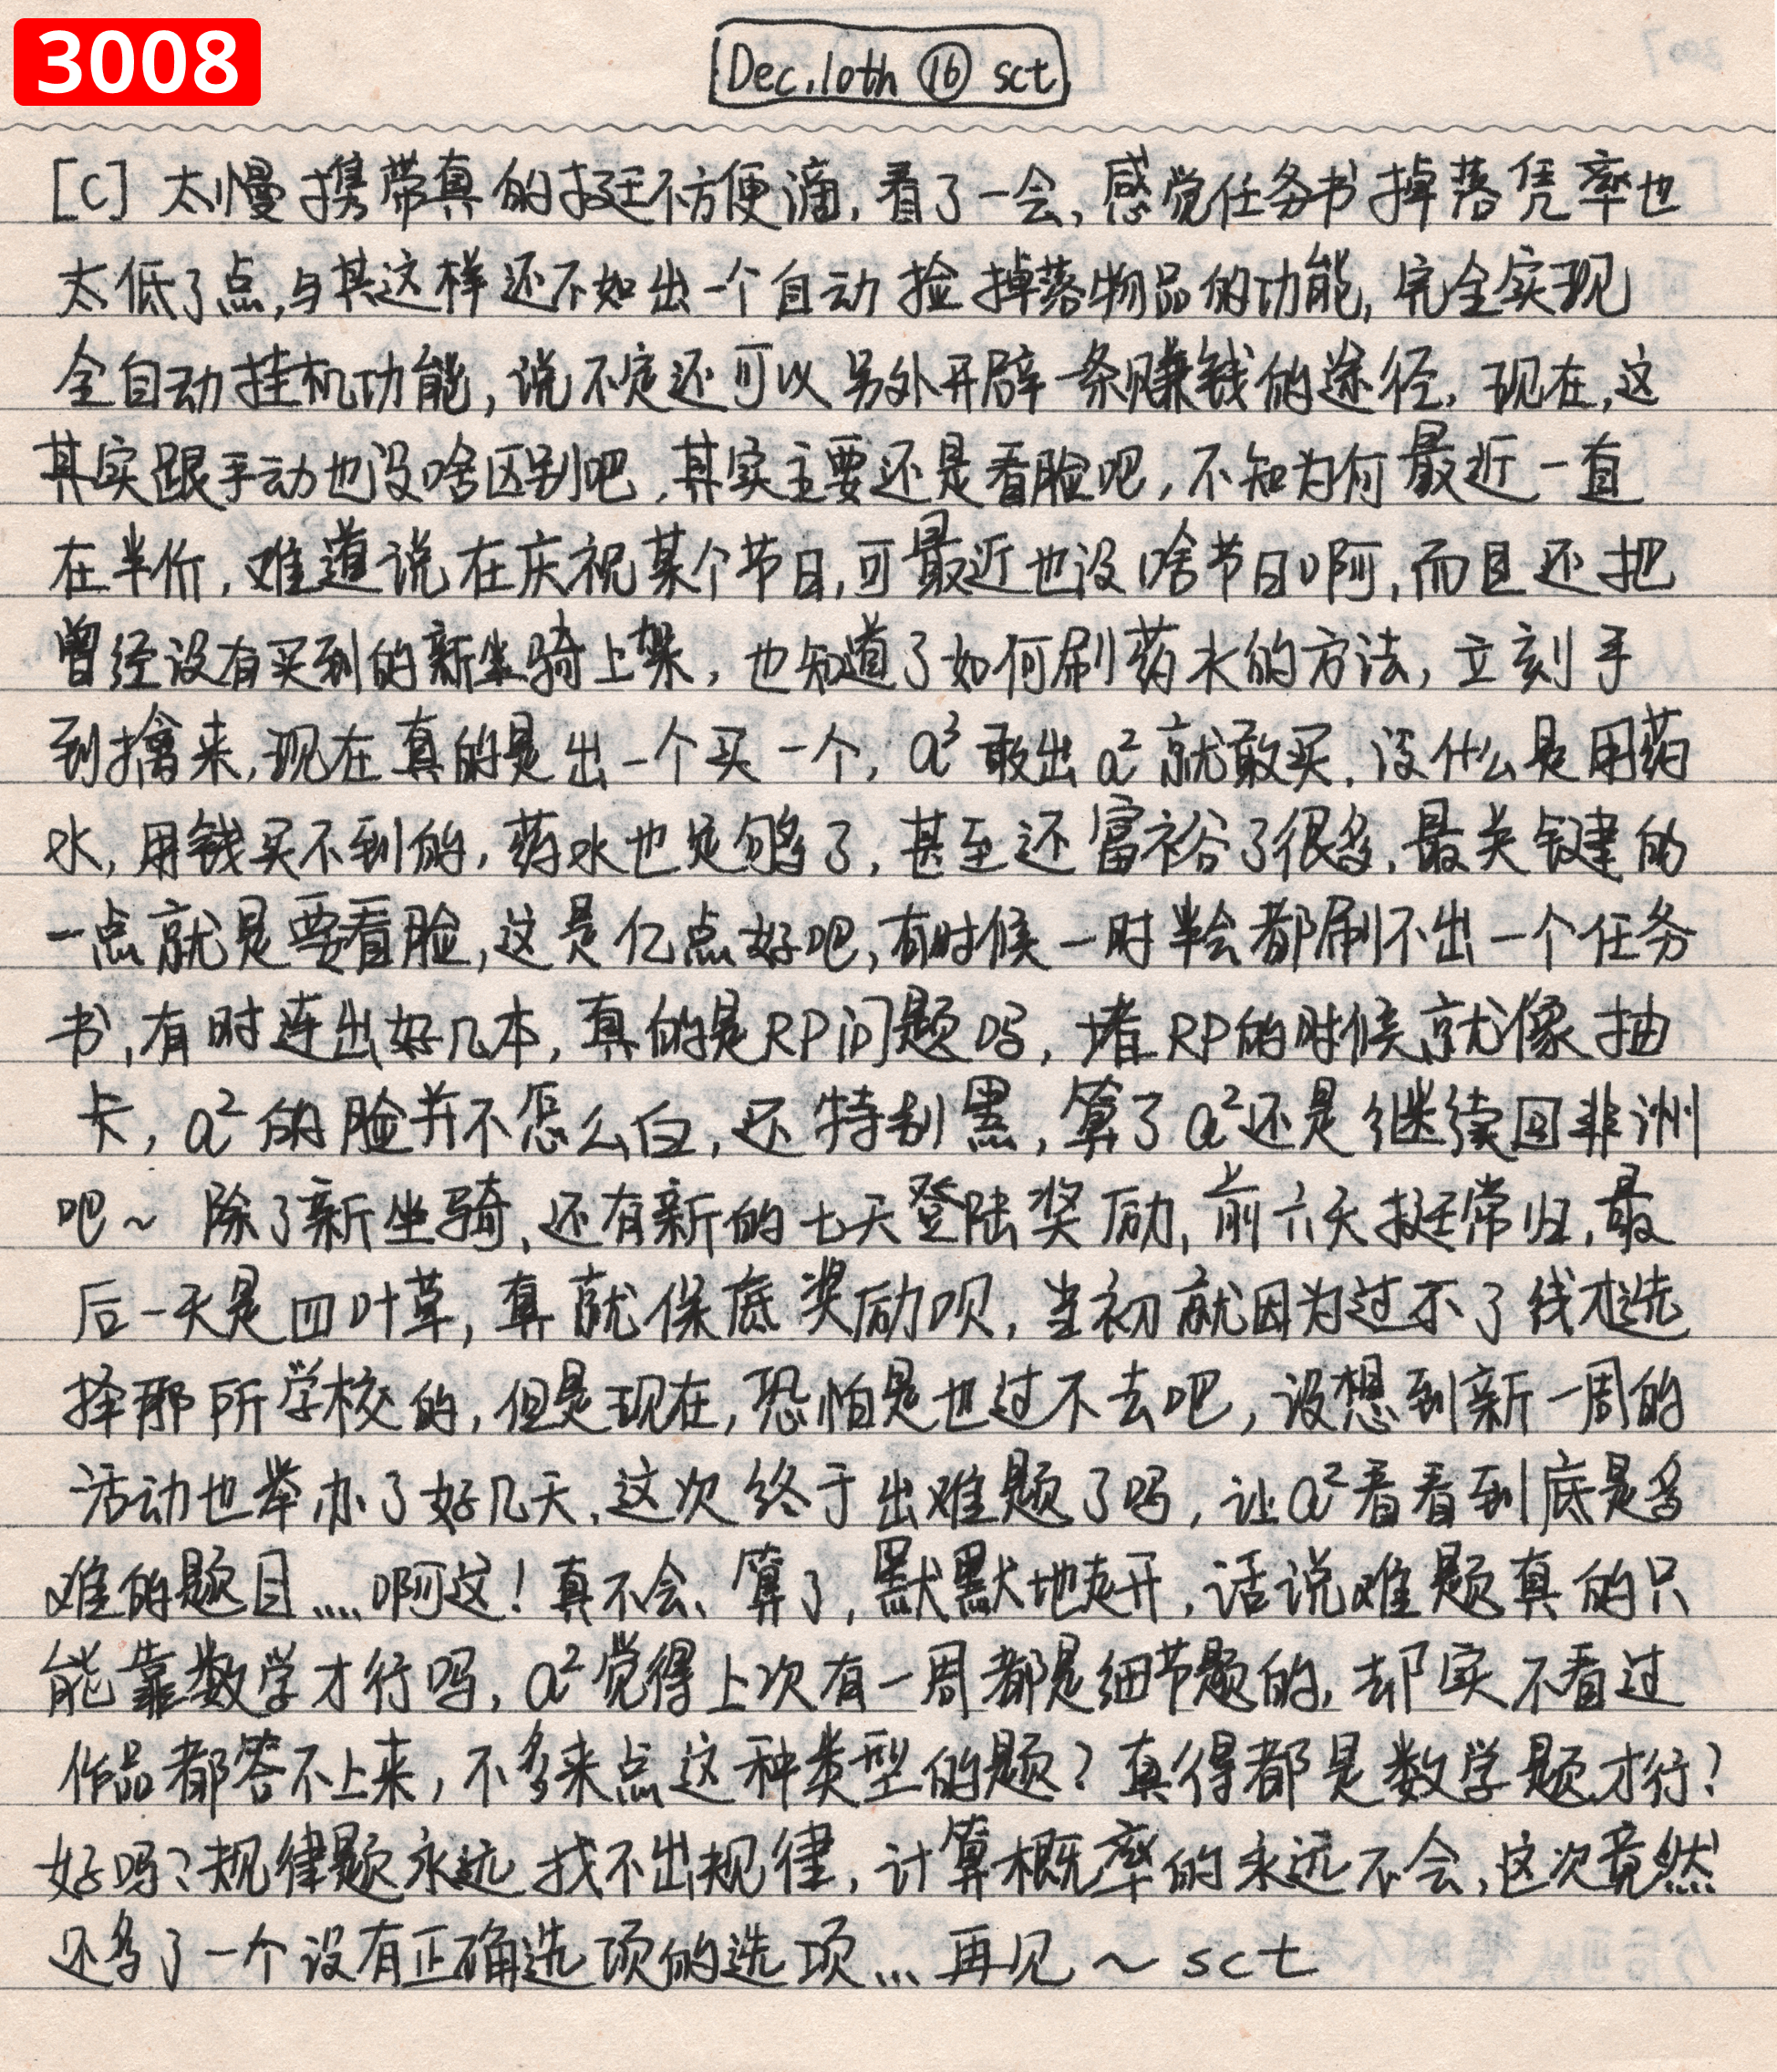 3008
Dec.10th ⑯ sct
[C] 太慢携带真的挺不方便滴,看了一会,感觉任务书掉落凭率也
太低了点,与其这样还不如出一个自动捡掉落物品的功能,完全实现
全自动挂机功能,说不定还可以另外开辟一条赚钱的途径,现在,这
其实跟手动也没啥区别吧,其实主要还是看脸吧,不知为何最近一直
在半价,难道说在庆祝某个节日,可最近也没啥节日啊,而且还把
曾经没有买到的新坐骑上架,也知道了如何刷药水的方法,立刻手
到擒来,现在真的是出一个买一个,a³敢出a²就敢买,没什么是用药
水,用钱买不到的,药水也足够多了,甚至还富裕了很多,最关键的
一点就是要看脸,这是亿点好吧,有时候一时半会都刷不出一个任务
书,有时连出好几本,真的是RP问题吗,堵RP的时候就像抽
卡,a²的脸并不怎么白,还特别黑,算了a²还是继续回非洲
吧~ 除了新坐骑,还有新的七天登陆奖励,前六天挺常归,最
后一天是四叶草,真就保底奖励呗,当初就因为过不了线才选
择那所学校的,但是现在,恐怕是也过不去吧,没想到新一周的
活动也举办了好几天,这次终于出难题了吗,让a²看看到底是多
难的题目....啊这!真不会、算了,默默地走开,话说难题真的只
能靠数学才行吗,a²觉得上次有一周都是细节题的,却实不看过
作品都答不上来,不多来点这种类型的题?真得都是数学题才行?
好吗?规律题永远找不出规律,计算概率的永远不会,这次竟然
还多了一个没有正确选项的选项...再见~sct